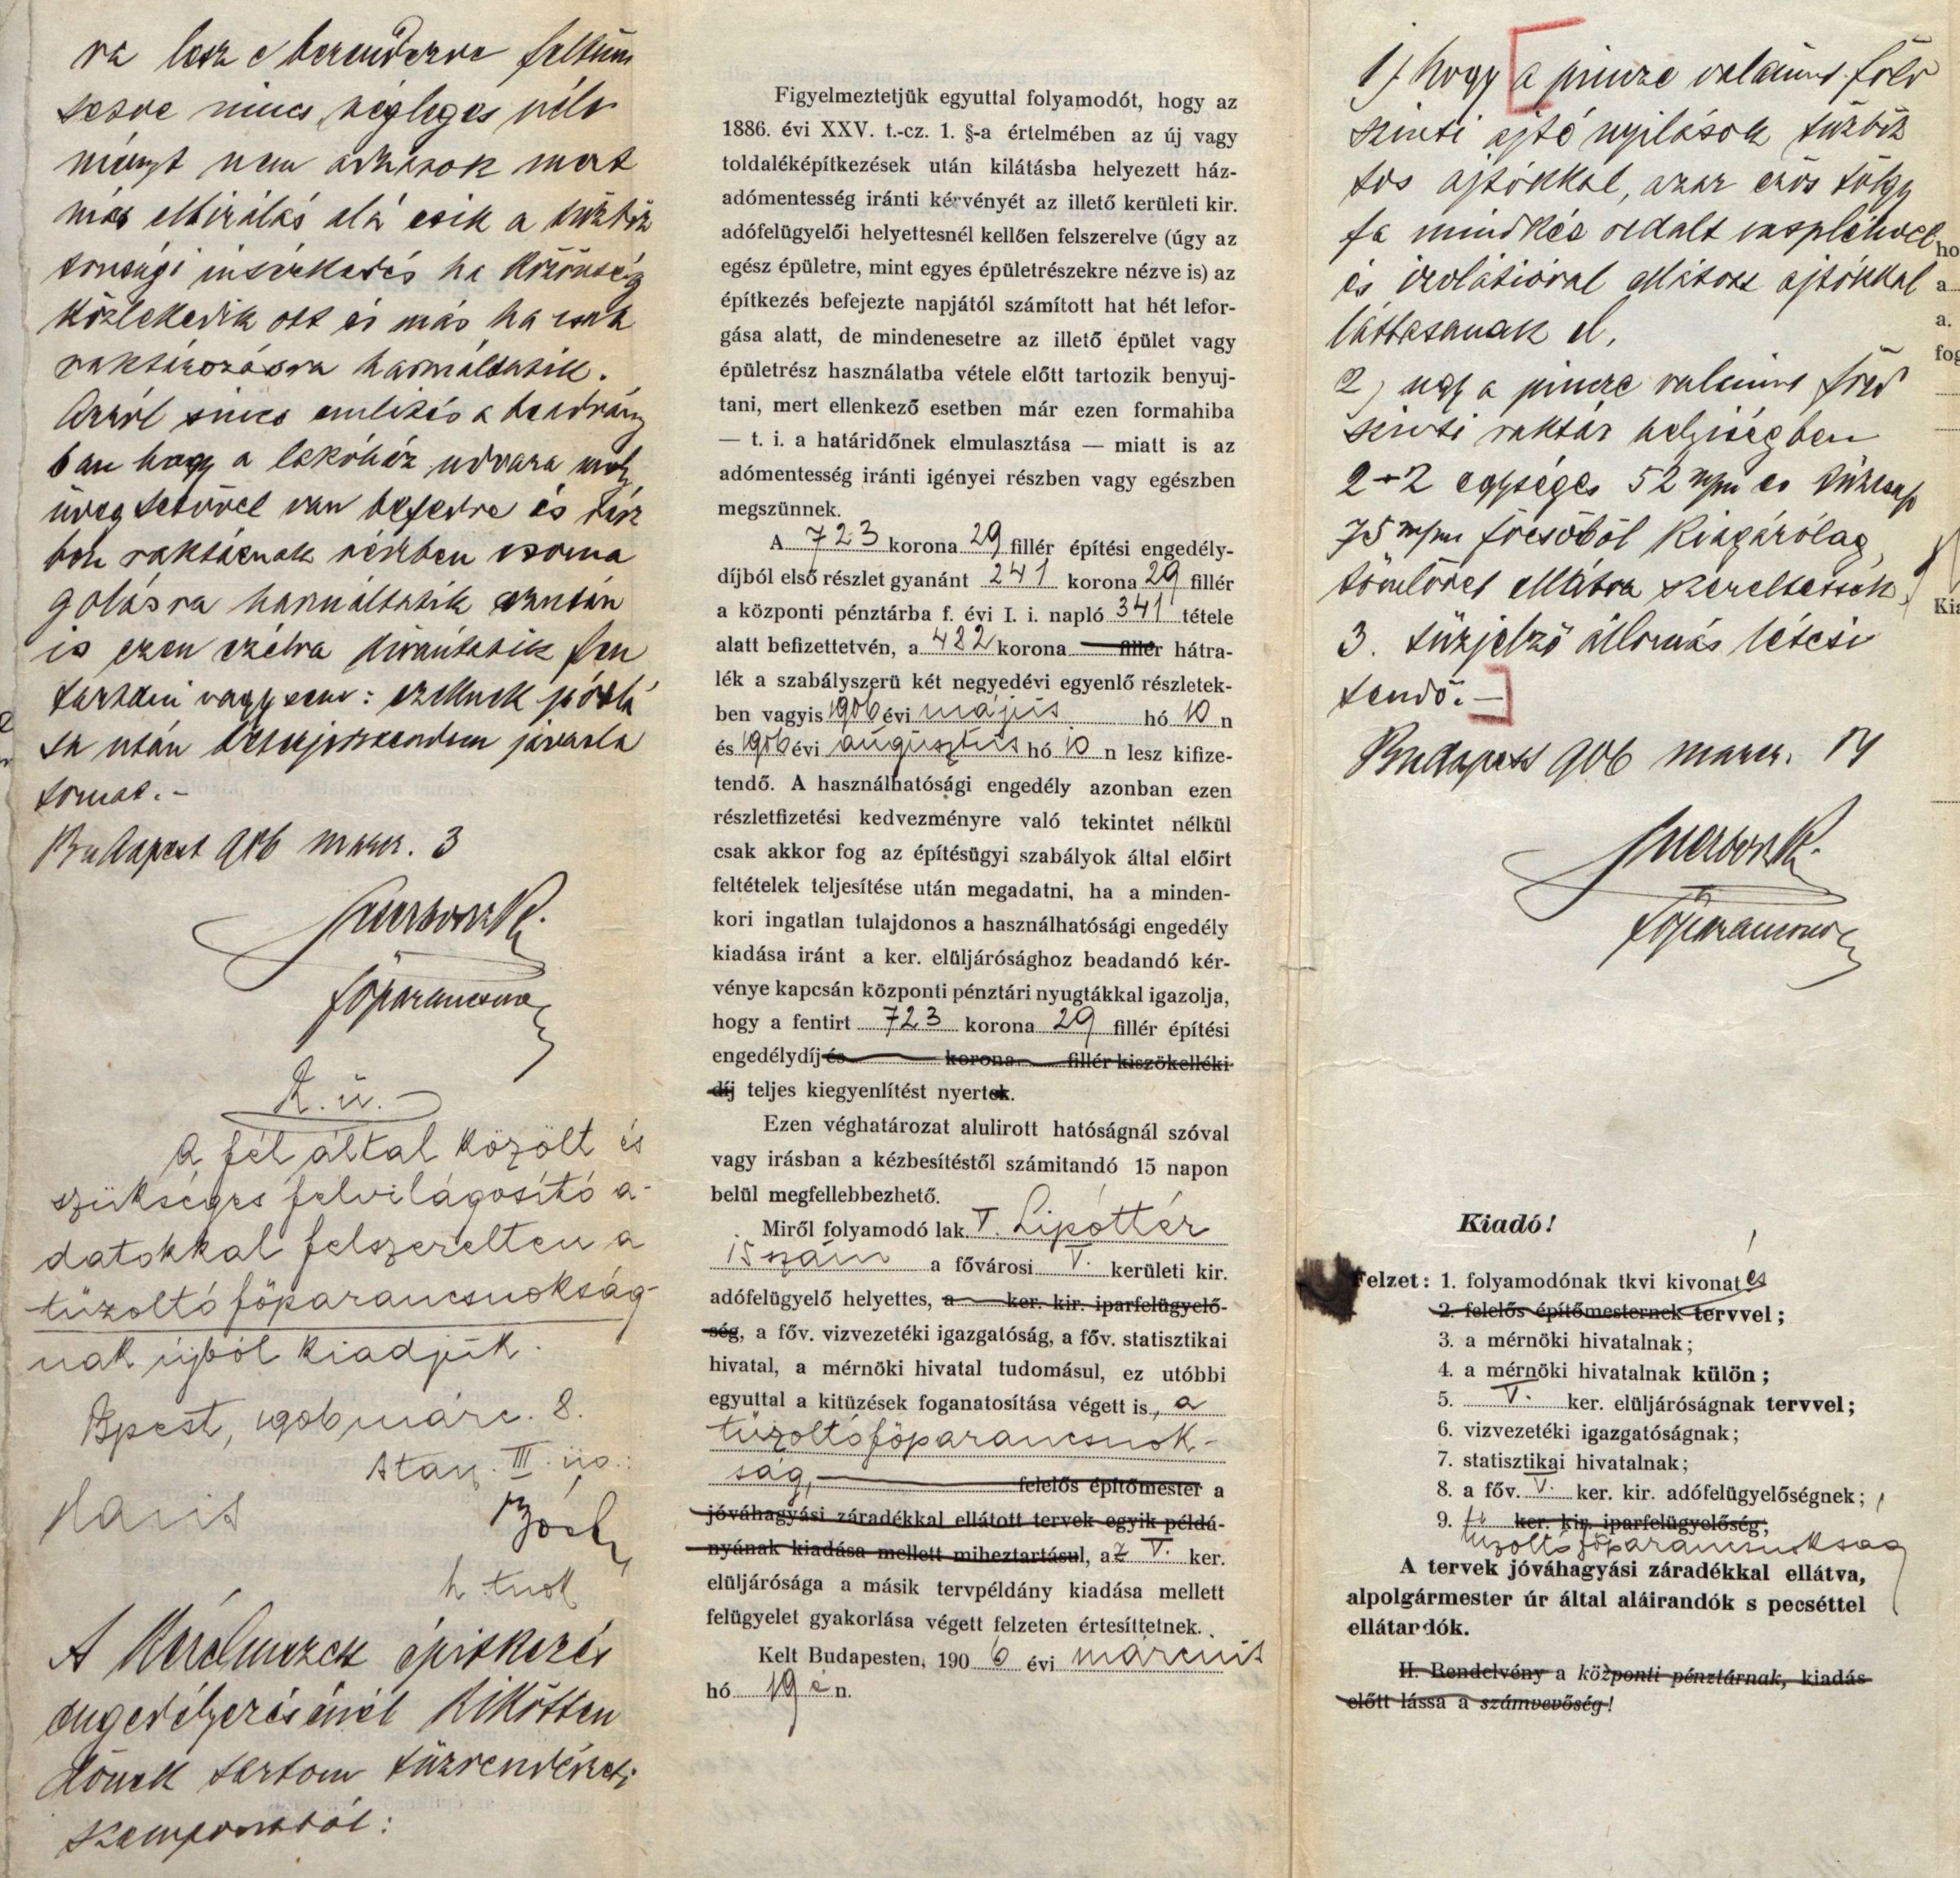 ra lesz e berendezve feltün
tetve nincs, végleges véle
ményt nem adhatok mert
más elbirálás alá esik a tűzbiz
tonsági intézkedés ha közönség
közlekedik ott és más ha csak
raktározásra használtatik.
Arról sincs említés a beadvány
ban hogy a lakóház udvara mely
üveg tetővel van befedve és rész
ben raktárnak részben csoma
golásra használtatik ezután
is ezen czélra kivántatik fen
tartani vagy sem: ezeknek pótlá
sa után terjesztendem javasla
tomat. -
Budapest 906 marz. 3
főparancsnok
R. ü.
A fél által közölt és
szükséges felvilágosító a-
datokkal felszerelten a
tüzoltó főparancsnokság-
nak újból kiadjuk.
Bpest, 1906 márc. 8.
III. üo.:
h. tnok
A kérelmezett épitkezés
engedélyezésénél kikötten
dőnek tartom tüzrendészeti
szempontból:
Figyelmeztetjük egyuttal folyamodót, hogy az
1886. évi XXV. t.-cz. 1. §-a értelmében az új vagy
toldaléképítkezések után kilátásba helyezett ház-
adómentesség iránti kérvényét az illető kerületi kir.
adófelügyelői helyettesnél kellően felszerelve (úgy az
egész épületre, mint egyes épületrészekre nézve is) az
építkezés befejezte napjától számított hat hét lefor-
gása alatt, de mindenesetre az illető épület vagy
épületrész használatba vétele előtt tartozik benyuj-
tani, mert ellenkező esetben már ezen formahiba
— t. i. a határidőnek elmulasztása — miatt is az
adómentesség iránti igényei részben vagy egészben
megszünnek.
A 723 korona 29 fillér építési engedély-
díjból első részlet gyanánt 241 korona 29 fillér
a központi pénztárba f. évi I. i. napló 341 tétele
alatt befizettetvén, a 482 korona fillér hátra-
lék a szabályszerü két negyedévi egyenlő részletek-
ben vagyis 1906 évi május hó 10 n
és 1906 évi augusztus hó 10 n lesz kifize-
tendő. A használhatósági engedély azonban ezen
részletfizetési kedvezményre való tekintet nélkül
csak akkor fog az építésügyi szabályok által előirt
feltételek teljesítése után megadatni, ha a minden-
kori ingatlan tulajdonos a használhatósági engedély
kiadása iránt a ker. elüljárósághoz beadandó kér-
vénye kapcsán központi pénztári nyugtákkal igazolja,
hogy a fentirt 723 korona 29 fillér építési
engedélydíj és korona fillér kiszökelléki
díj teljes kiegyenlítést nyertek.
Ezen véghatározat alulirott hatóságnál szóval
vagy irásban a kézbesítéstől számitandó 15 napon
belül megfellebbezhető.
Miről folyamodó lak. V. Lipóttér
15 szám a fővárosi V. kerületi kir.
adófelügyelő helyettes, a ker. kir. iparfelügyelő-
ség, a főv. vizvezetéki igazgatóság, a főv. statisztikai
hivatal, a mérnöki hivatal tudomásul, ez utóbbi
egyuttal a kitüzések foganatosítása végett is, a
tüzoltó főparancsnok-
ság, felelős építőmester a
jóváhagyási záradékkal ellátott tervek egyik példá-
nyának kiadása mellett miheztartásul, az V. ker.
elüljárósága a másik tervpéldány kiadása mellett
felügyelet gyakorlása végett felzeten értesíttetnek.
Kelt Budapesten, 190 6 évi március
hó 19 én.
1) hogy a pincze valamint föld
szinti ajtó nyilások tüzbiz
tos ajtókkal, azaz erős tölgy
fa mindkét oldalt vaspléhvel
és izolátióval ellátott ajtókkal
láttassanak el,
2) ugy a pincze valamint föld
szinti raktár helyiségben
2-2 egységes 52 m/m es tüzcsap
75 m/m főcsőből kiágazólag
tömlővel ellátva szereltessék,
3. tüzjelző állomás létesi
tendő. —
Budapest 906 marz. 17
főparancsnok
ho
a
a.
fog
Kia
Kiadó!
Felzet: 1. folyamodónak tkvi kivonat és
2. felelős építőmesternek tervvel;
3. a mérnöki hivatalnak;
4. a mérnöki hivatalnak külön;
5. V. ker. elüljáróságnak tervvel;
6. vizvezetéki igazgatóságnak;
7. statisztikai hivatalnak;
8. a főv. V. ker. kir. adófelügyelőségnek;
9. ker. kir. iparfelügyelőség;
tüzoltó főparancsnokság
A tervek jóváhagyási záradékkal ellátva,
alpolgármester úr által aláirandók s pecséttel
ellátandók.
II. Rendelvény a központi pénztárnak, kiadás
előtt lássa a számvevőség!